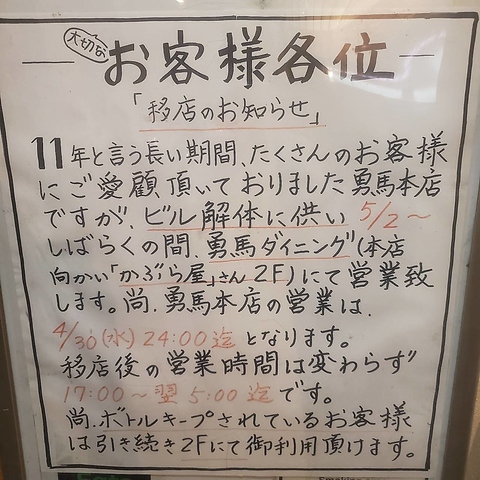 大切な
お客様各位
「移店のお知らせ」
11年と言う長い期間、たくさんのお客様
にご愛顧頂いておりました勇馬本店
ですが、ビル解体に供い 5/2〜
しばらくの間、勇馬ダイニング(本店
向かい「かぶら屋」さん2F)にて営業致
します。尚、勇馬本店の営業は、
4/30(水) 24:00迄となります。
移店後の営業時間は変わらず
17:00〜翌5:00迄です。
尚、ボトルキープされているお客様
は引き続き2Fにて御利用頂けます。